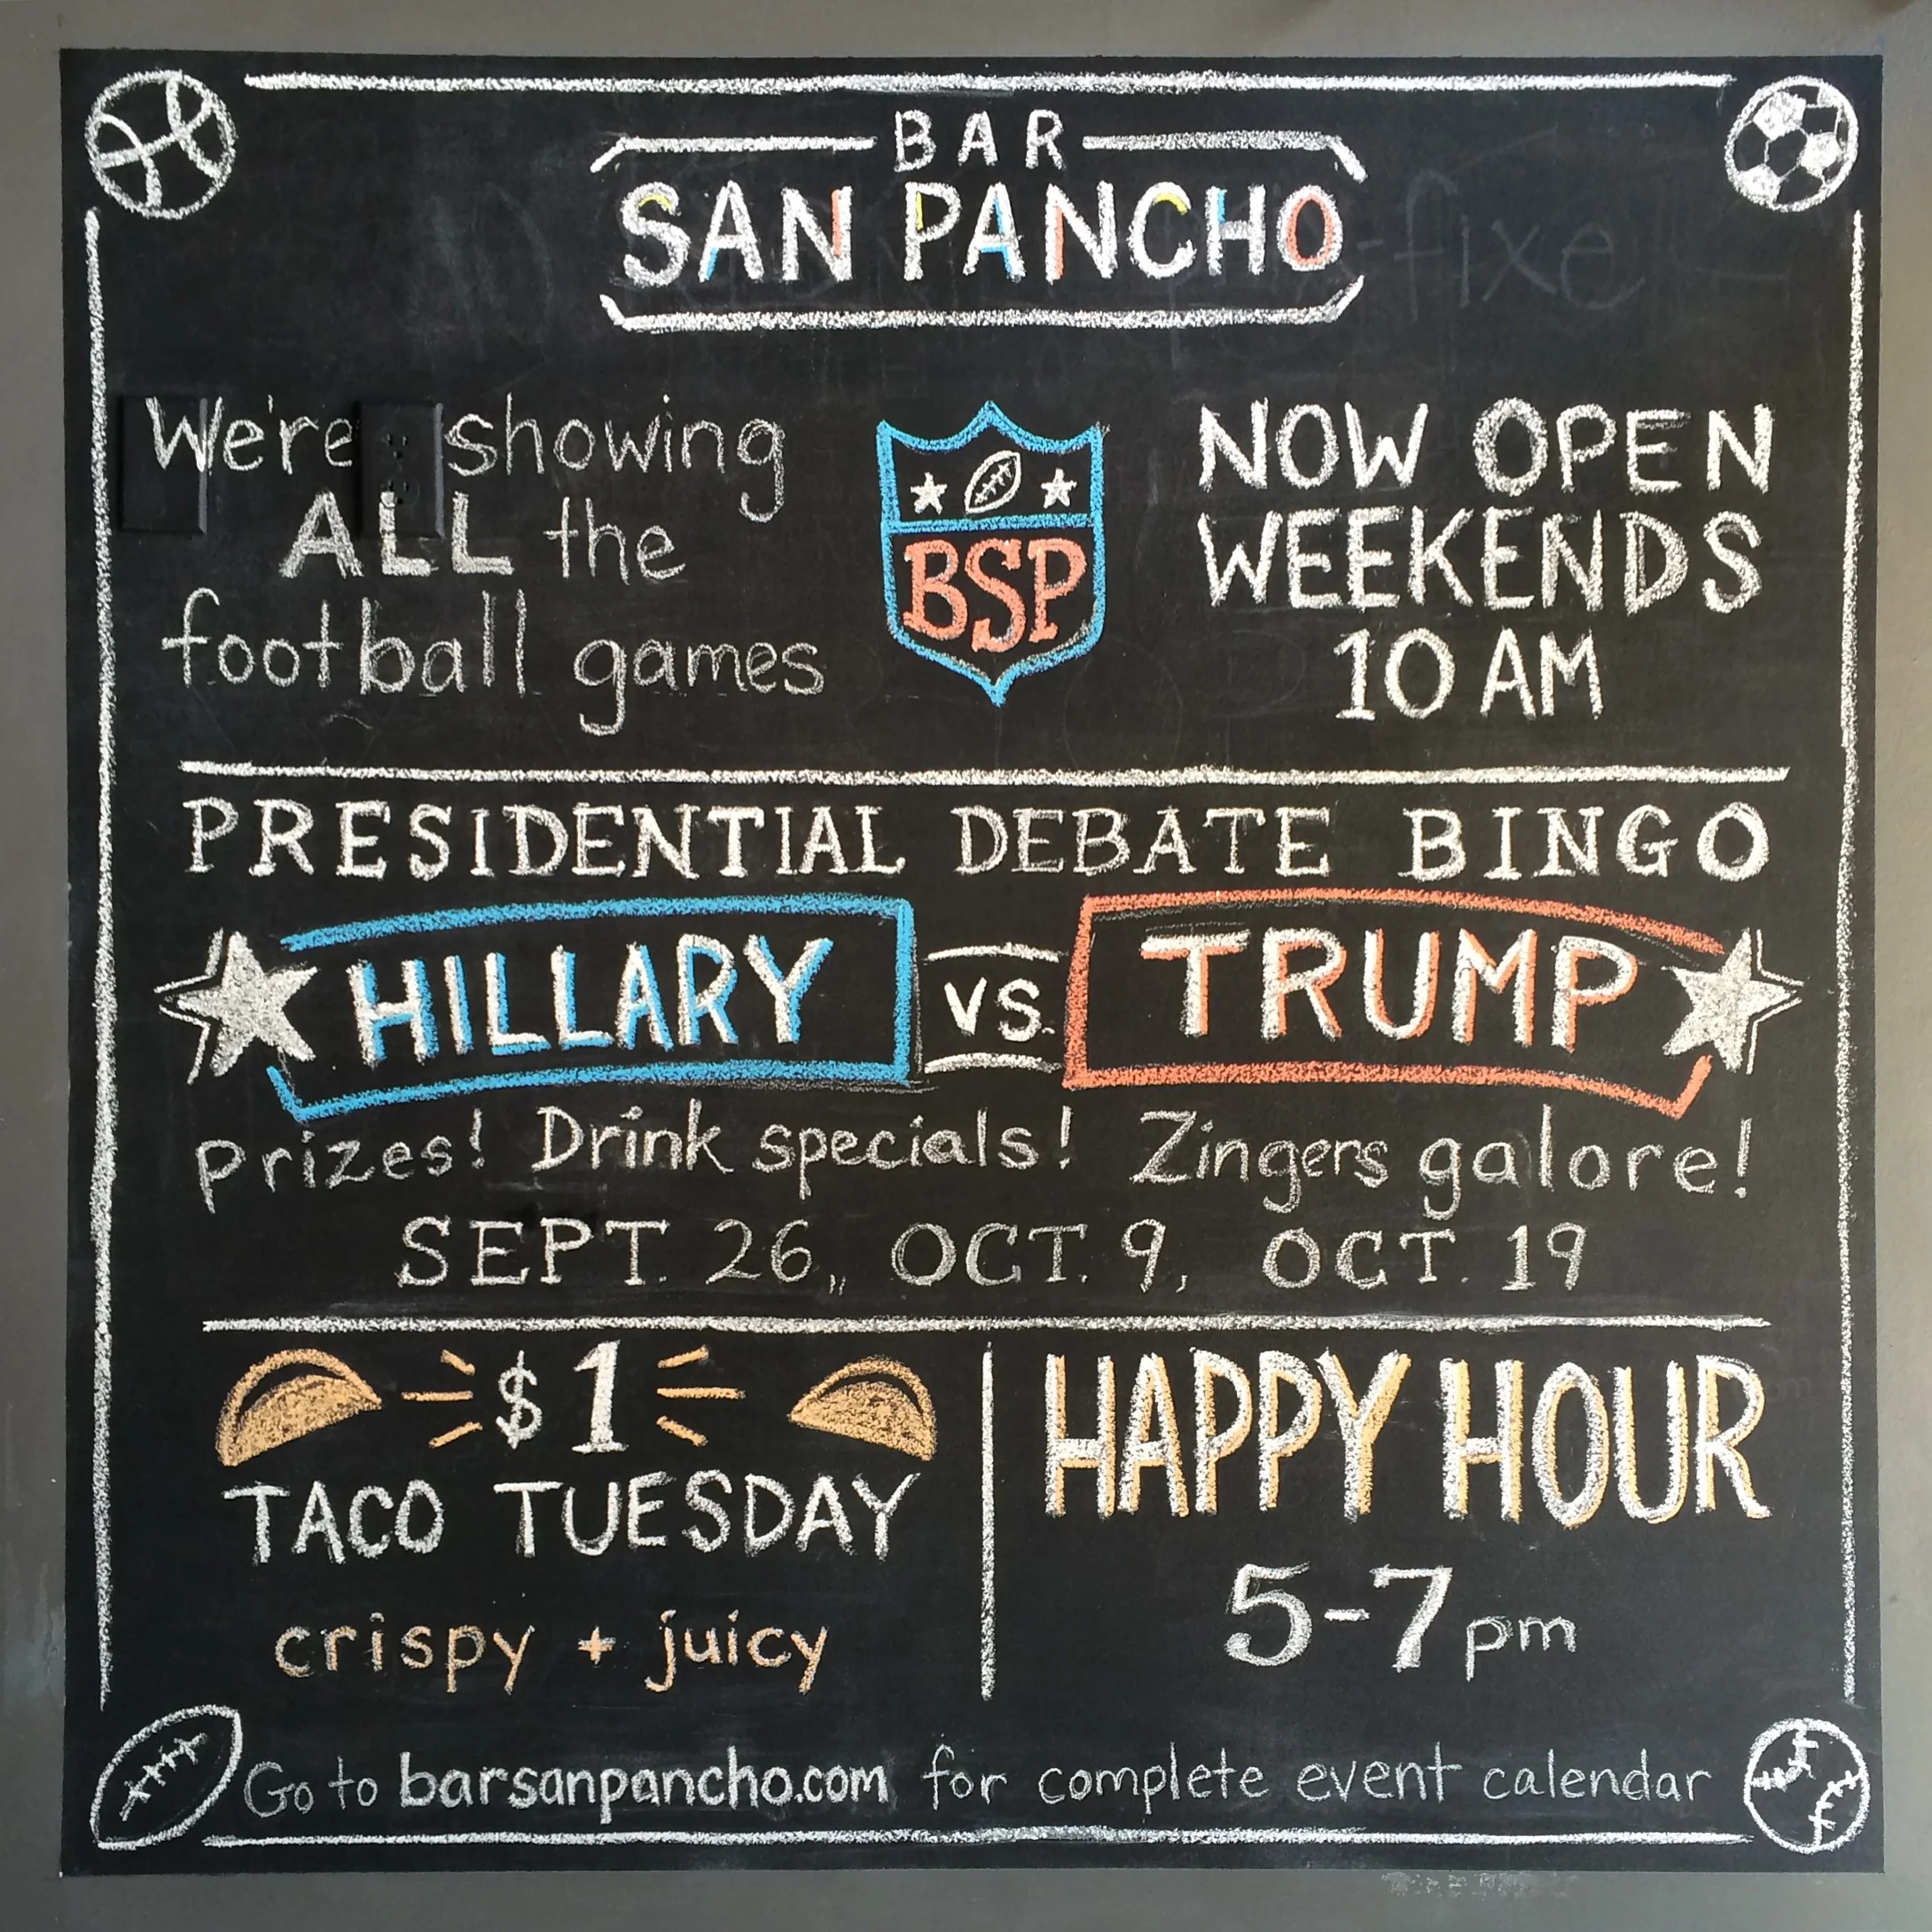 BAR
SAN PANCHO
-fixe
We're showing
ALL the
football games
BSP
NOW OPEN
WEEKENDS
10 AM
PRESIDENTIAL DEBATE BINGO
HILLARY VS. TRUMP
prizes! Drink specials! Zingers galore!
SEPT. 26, OCT. 9, OCT. 19
$1
TACO TUESDAY
crispy + juicy
HAPPY HOUR
5-7pm
Go to barsanpancho.com for complete event calendar